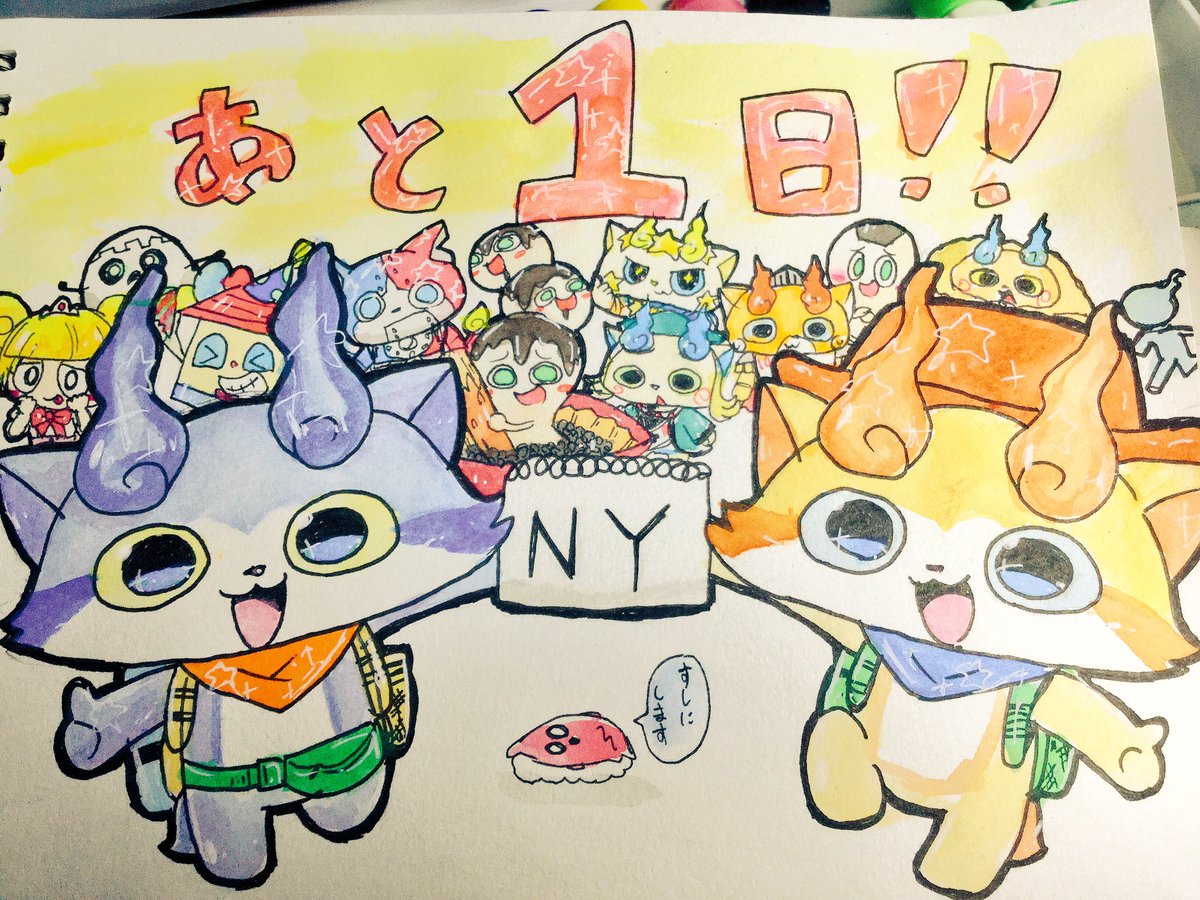 あと1日!!
NY
すしに
します